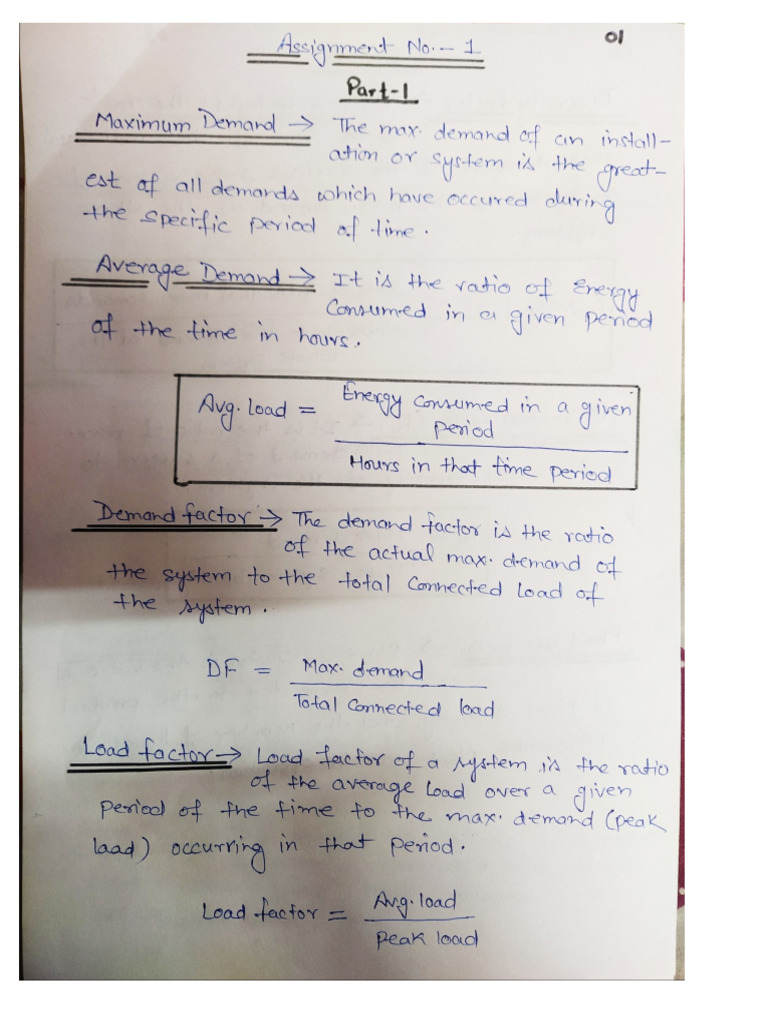 Assignment No.- 1
01
Part-1
Maximum Demand → The max. demand of an install-
ation or system is the great-
est of all demands which have occured during
the specific period of time.
Average Demand → It is the ratio of Energy
Consumed in a given period
of the time in hours.
Avg. load = Energy consumed in a given
period
Hours in that time period
Demand factor → The demand factor is the ratio
of the actual max. demand of
the system to the total connected load of
the system.
DF = Max. demand
Total connected load
Load factor → Load factor of a system is the ratio
of the average load over a given
period of the time to the max. demand (peak
laad) occurring in that period.
Load factor = Avg. load
peak load